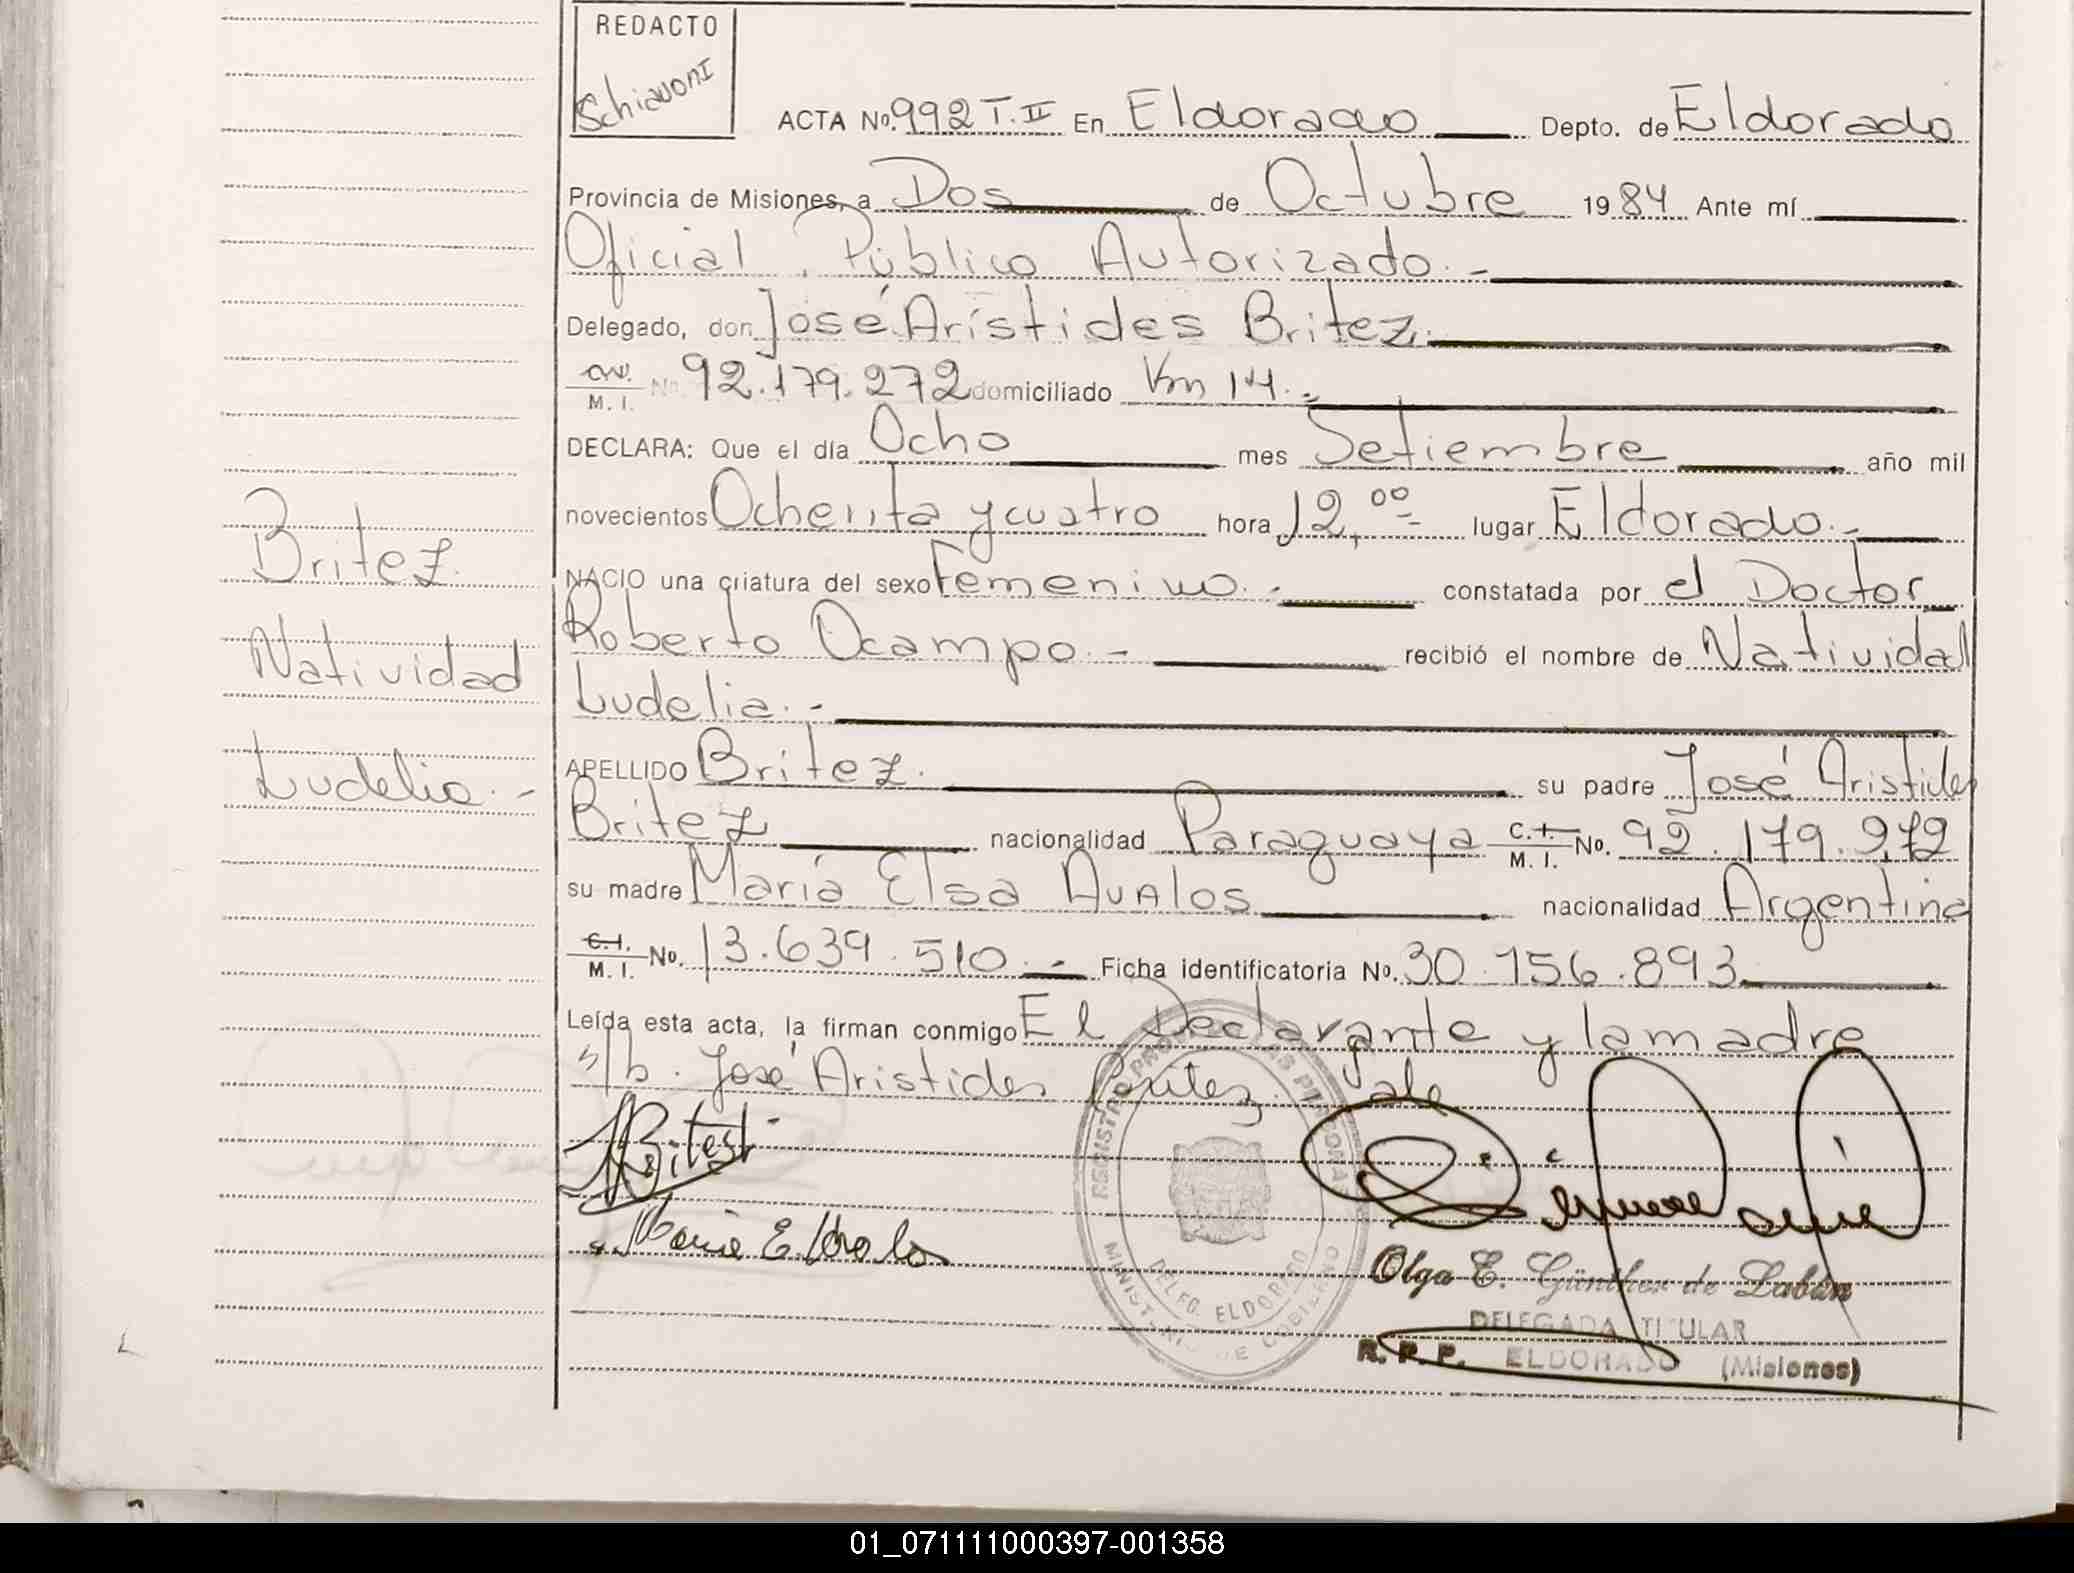 REDACTO
Schiavoni
ACTA No. 992 T.II En Eldorado Depto. de Eldorado
Provincia de Misiones, a Dos de Octubre 1984 Ante mí
Oficial Público Autorizado.-
Delegado, don José Arístides Britez.
M. I. No. 92.179.272 domiciliado Km 14.-
DECLARA: Que el día Ocho mes Setiembre año mil
novecientos Ochenta y cuatro hora 12,00 lugar Eldorado.-
NACIO una criatura del sexo Femenino.- constatada por el Doctor
Roberto Ocampo.- recibió el nombre de Natividad
Ludelia.-
APELLIDO Britez. su padre José Aristides
Britez nacionalidad Paraguaya C.I. M. I. No. 92.179.272
su madre María Elsa Avalos nacionalidad Argentina
C.I. M. I. No. 13.639.510.- Ficha identificatoria No. 30.156.893
Leída esta acta, la firman conmigo El Declarante y la madre
s/b. José Aristides Britez. Vale
Britez
Natividad
Ludelia.-
Britez
Maria E. Avalos
REGISTRO PROVINCIAL DE LAS PERSONAS
DELEG. ELDORADO
MINISTERIO DE GOBIERNO
Olga E. Günther de Labán
DELEGADA TITULAR
R. P. P. ELDORADO (Misiones)
01_071111000397-001358